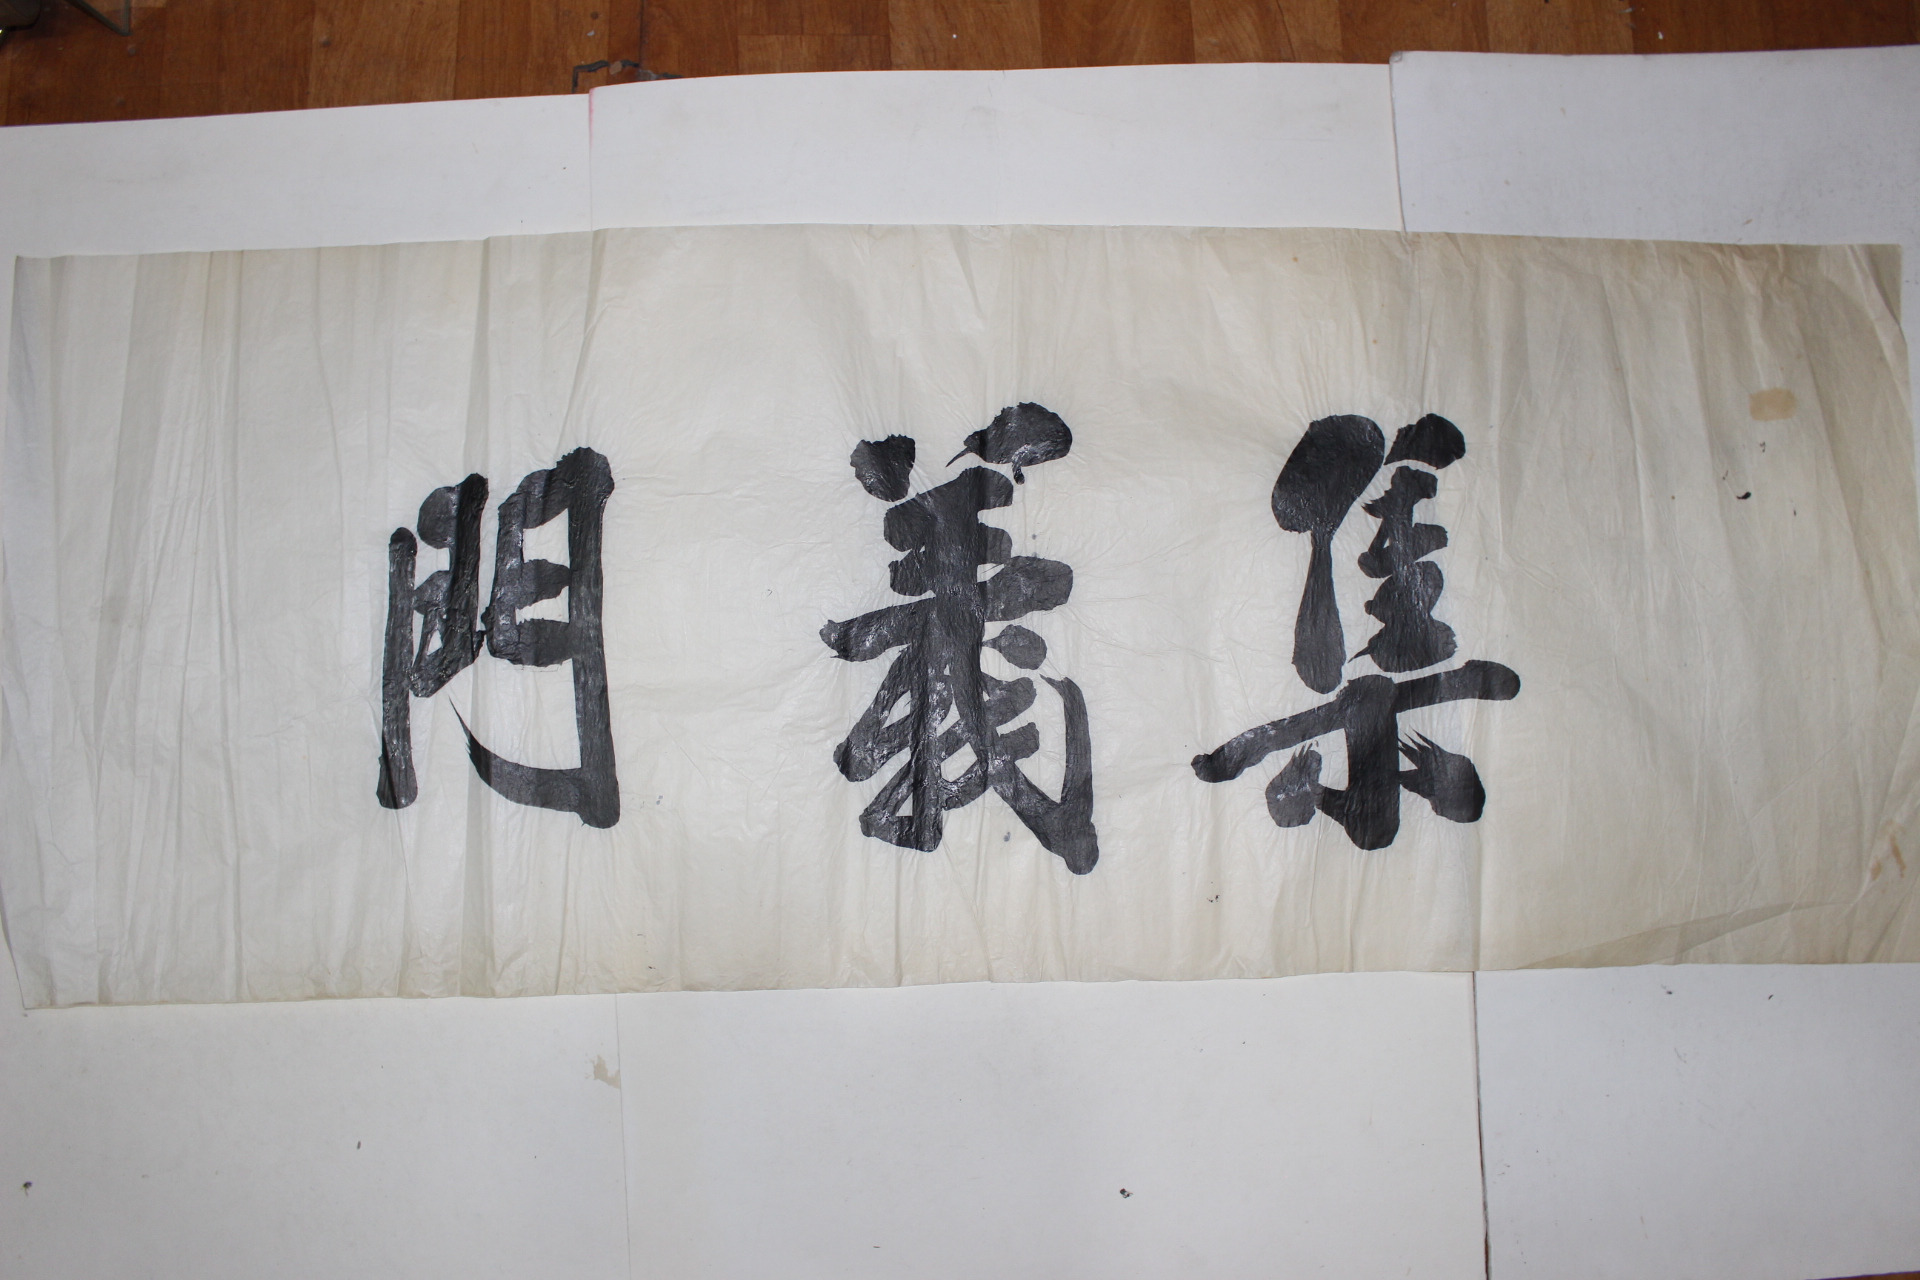 集義門